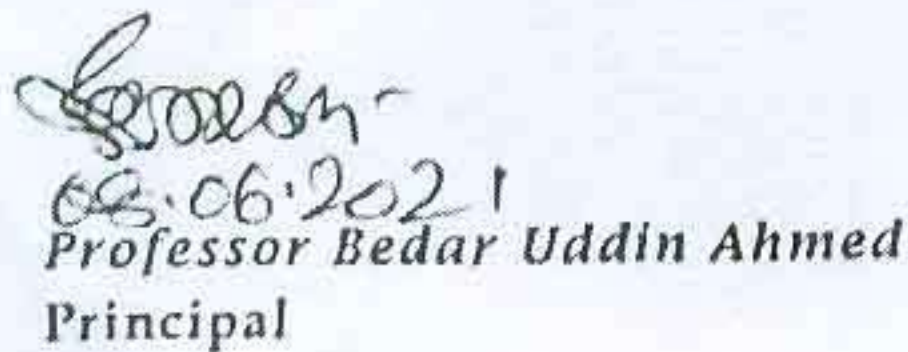 08.06.2021
Professor Bedar Uddin Ahmed
Principal